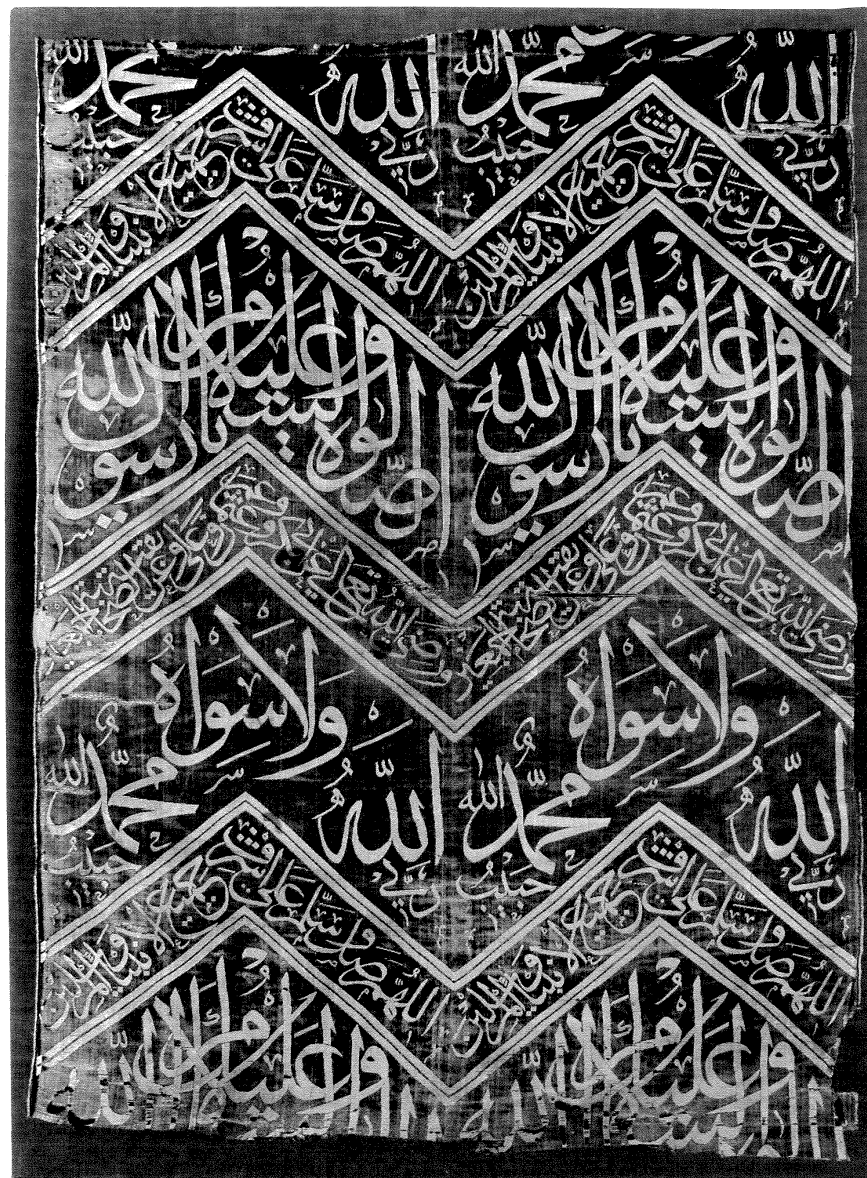 الله ربي محمد حبيب الله الله ربي محمد حبيب الله
اللهم صل وسلم على اشرف جميع الانبياء والمرسلين اللهم صل وسلم على اشرف جميع الانبياء والمرسلين
الصلوة والسلام عليك يا رسول الله الصلوة والسلام عليك يا رسول الله
ورضى الله تعالى عن ابي بكر وعمر وعثمان وعلي وعن بقية الصحابة اجمعين ورضى الله تعالى عن ابي بكر وعمر وعثمان وعلي وعن بقية الصحابة اجمعين
ولا سواه ولا سواه
الله ربي محمد حبيب الله الله ربي محمد حبيب الله
اللهم صل وسلم على اشرف جميع الانبياء والمرسلين اللهم صل وسلم على اشرف جميع الانبياء والمرسلين
والسلام عليك والسلام عليك